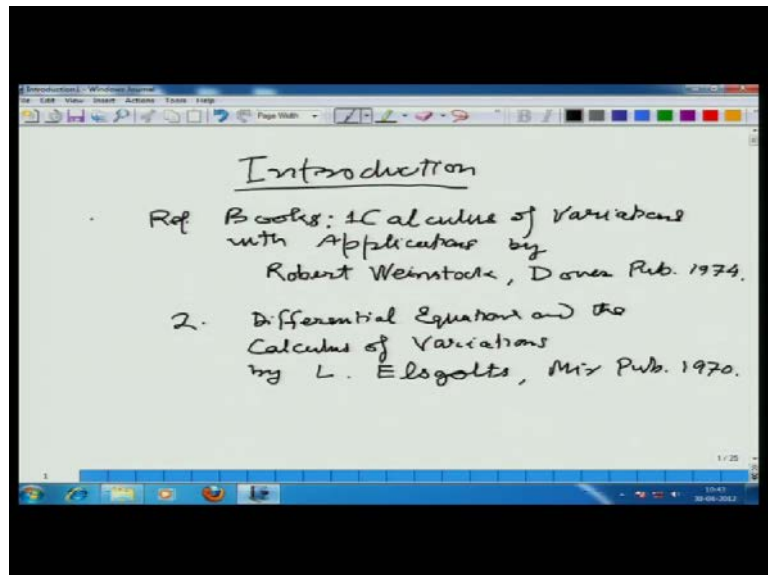 Introduction1 - Windows Journal
File Edit View Insert Actions Tools Help
Page Width
Introduction
Ref. Books: 1 Calculus of Variations
with Applications by
Robert Weinstock, Dover Pub. 1974.
2. Differential Equations and the
Calculus of Variations
by L. Elsgolts, Mir Pub. 1970.
1 / 25
1
10:43
30-06-2012